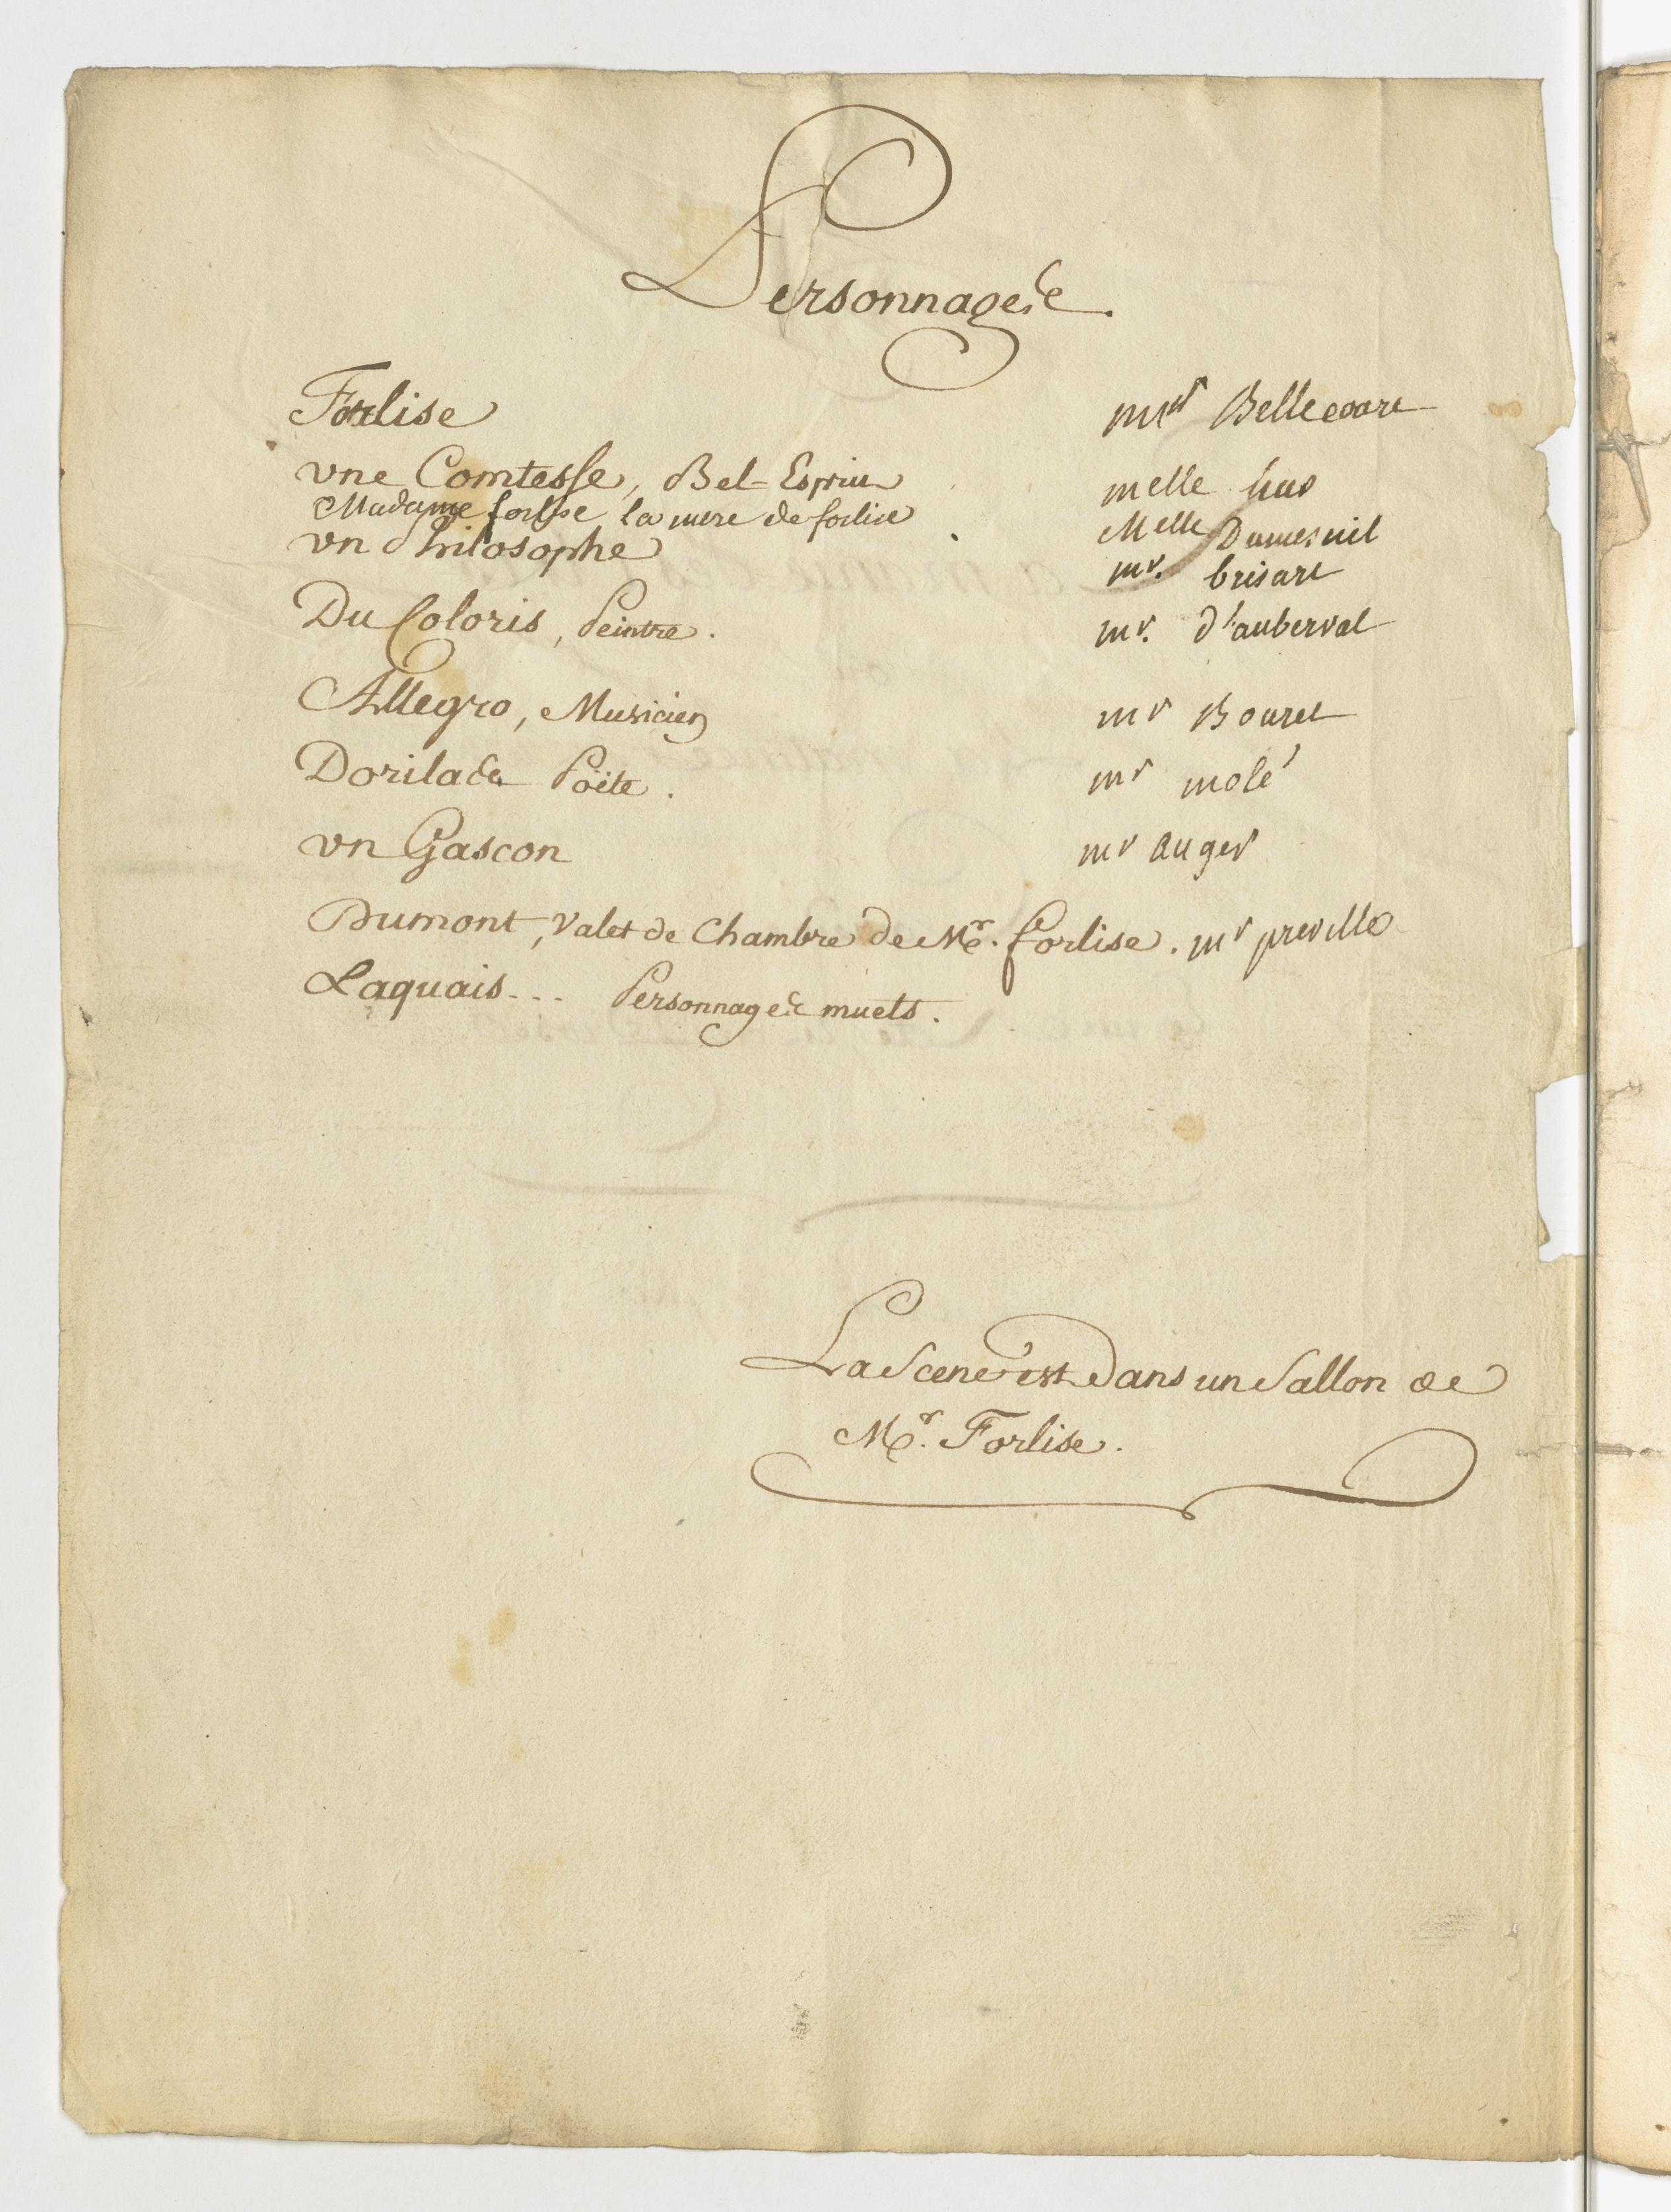 Personnages.
Forlise mr Bellecourt
une Comtesse, Bel-Esprit melle hus
Madame forlise la mere de forlise Melle Dumesnil
un Philosophe mr. brisart
Du Coloris, Peintre. mr. d'auberval
Allegro, Musicien mr Bouret
Dorilas Poëte. mr molé
un Gascon mr auger
Dumont, Valet de Chambre de Mr. forlise. mr preville
Laquais... Personnages muets.
La Scene est dans un Sallon de
Mr. Forlise.